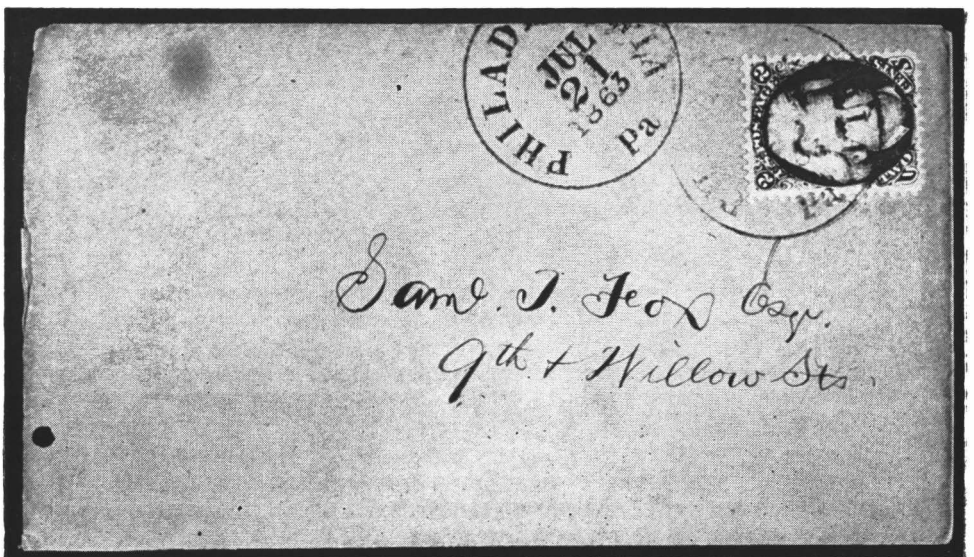 PHILADELPHIA
JUL
21
1863
Pa
Pa
Saml. T. Fox Esqr.
9th + Willow Sts.